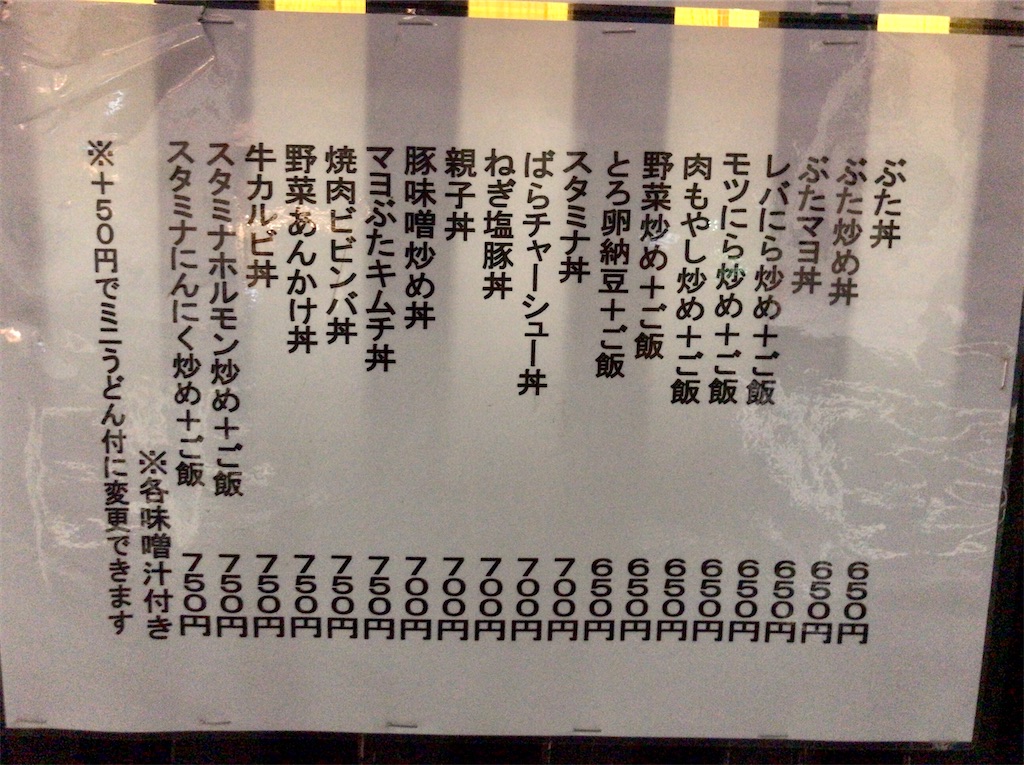 ぶた丼 650円
ぶた炒め丼 650円
ぶたマヨ丼 650円
レバにら炒め＋ご飯 650円
モツにら炒め＋ご飯 650円
肉もやし炒め＋ご飯 650円
野菜炒め＋ご飯 650円
とろ卵納豆＋ご飯 650円
スタミナ丼 700円
ばらチャーシュー丼 700円
ねぎ塩豚丼 700円
親子丼 700円
豚味噌炒め丼 700円
マヨぶたキムチ丼 750円
焼肉ビビンバ丼 750円
野菜あんかけ丼 750円
牛カルビ丼 750円
スタミナホルモン炒め＋ご飯 750円
スタミナにんにく炒め＋ご飯 750円
※各味噌汁付き
※＋50円でミニうどん付に変更できます